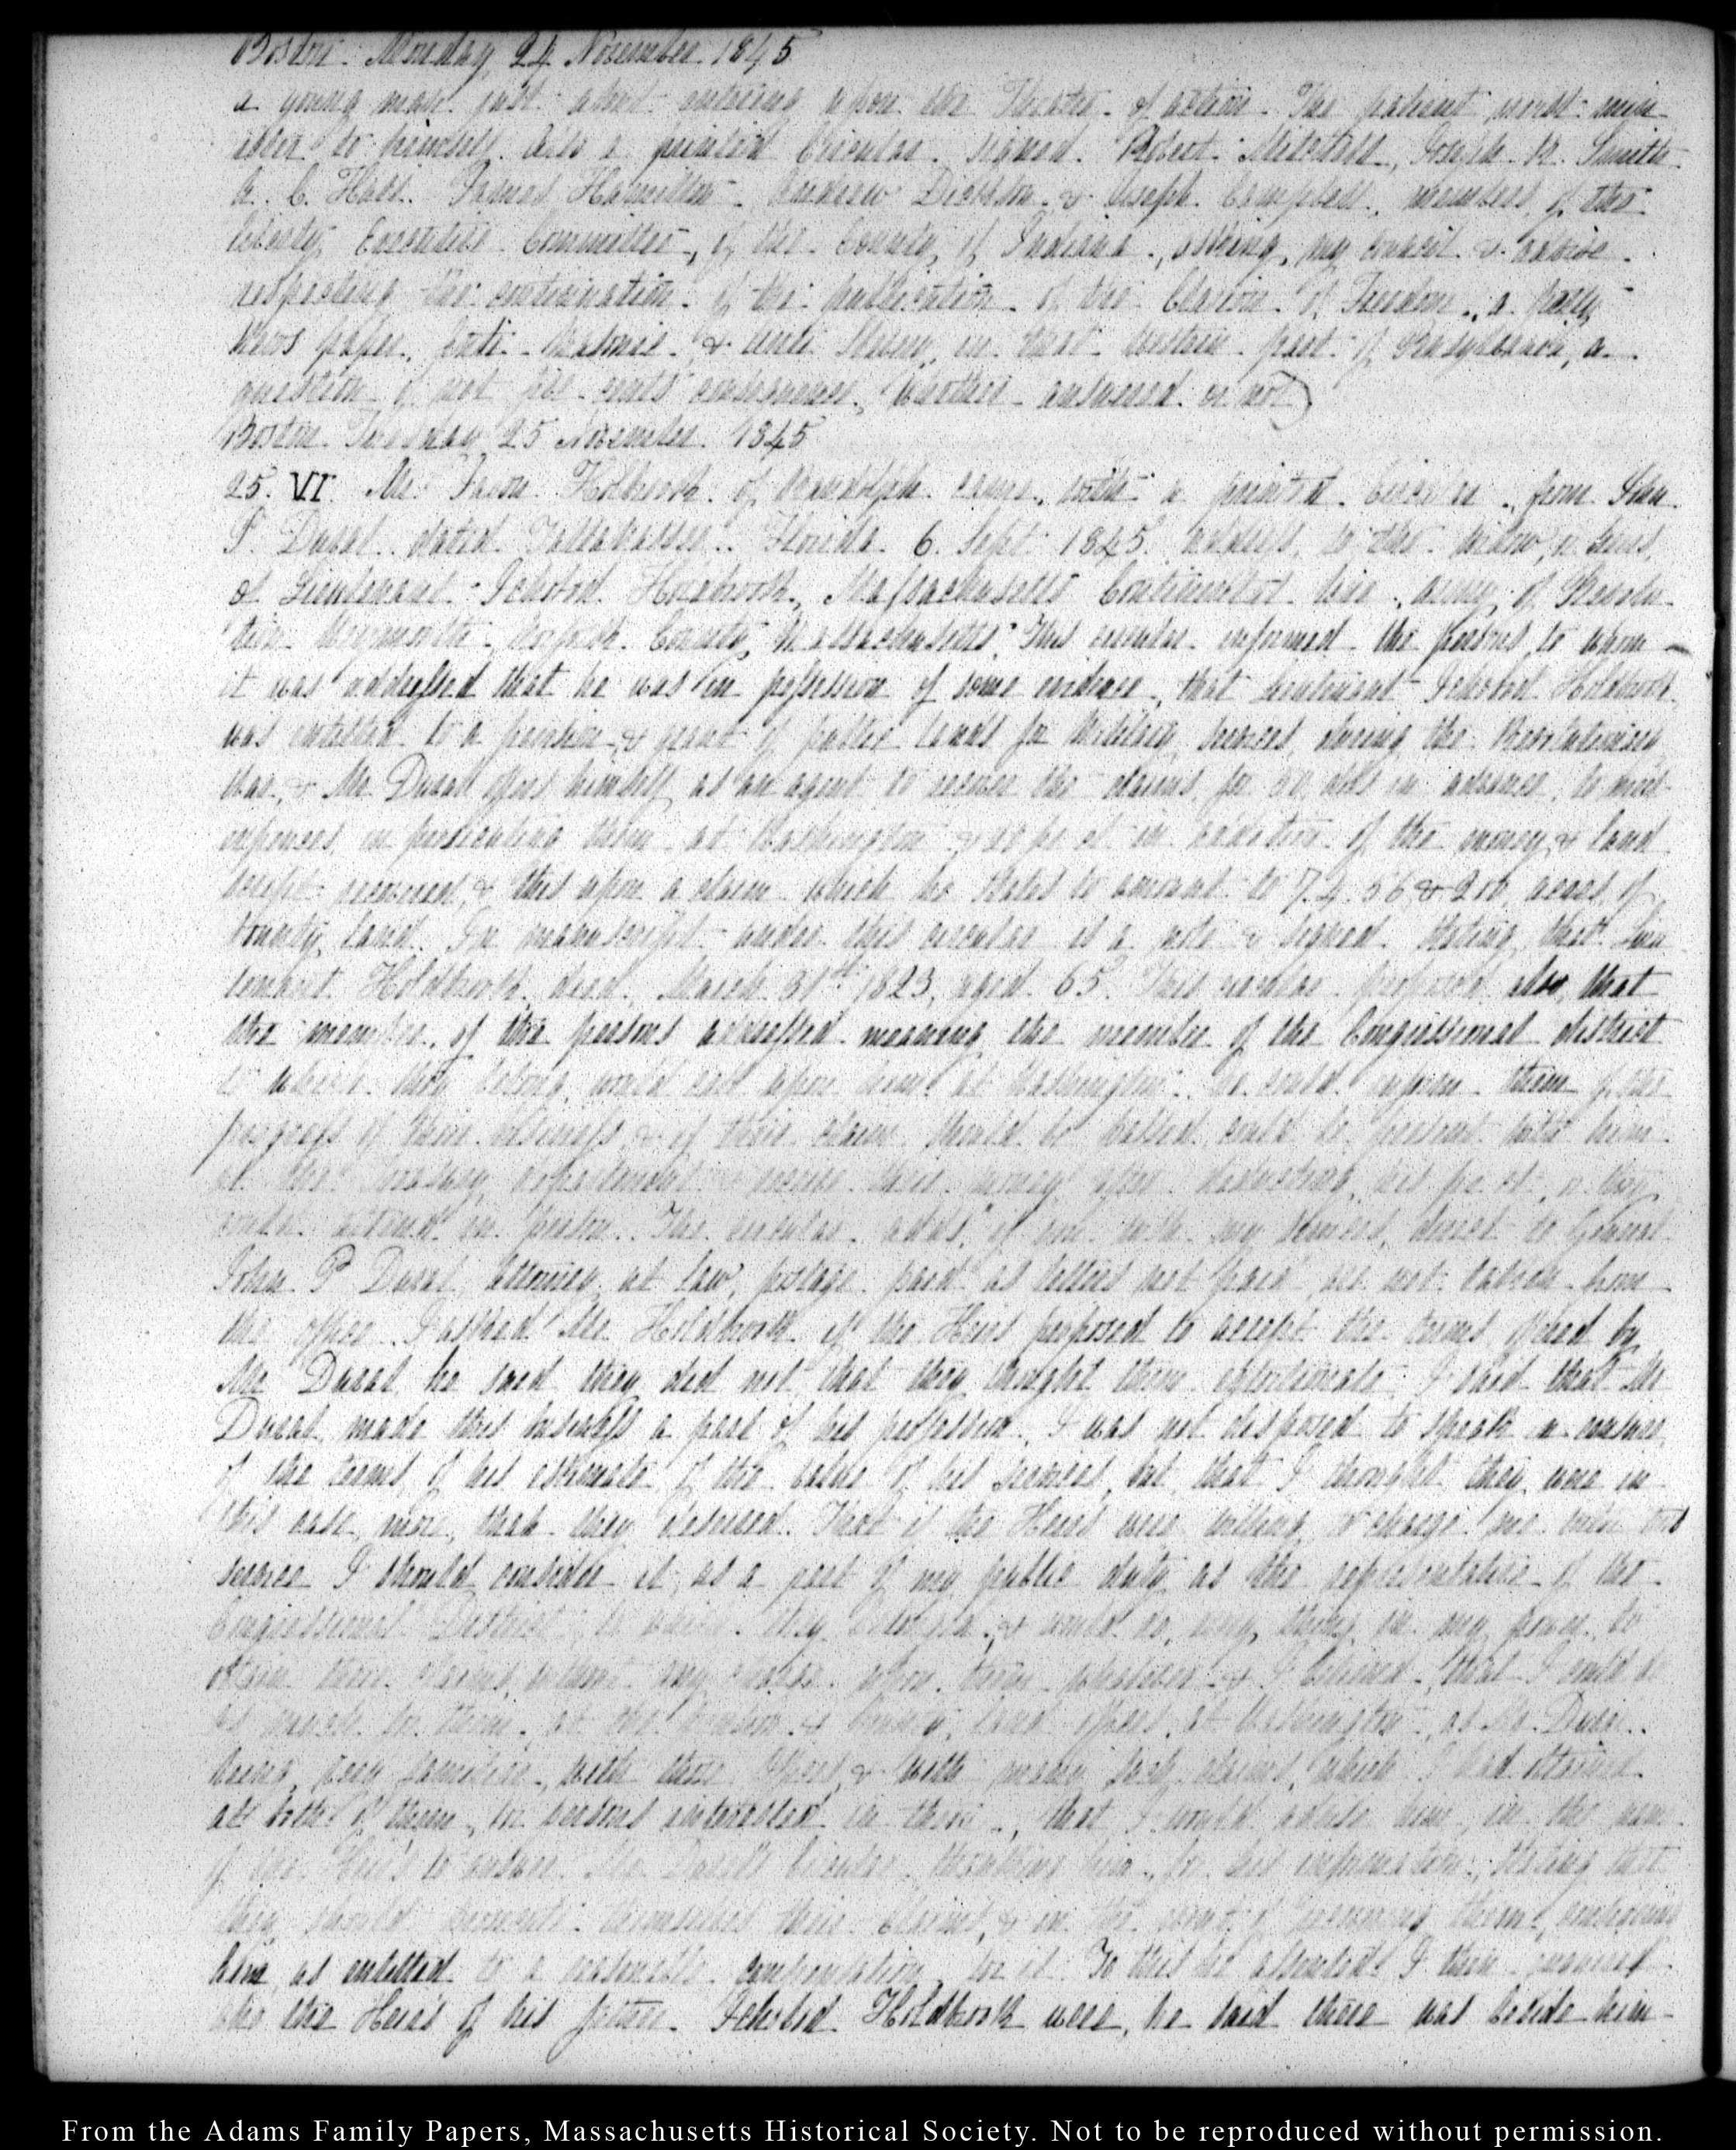 Boston. Monday 24 November. 1845
a young man just about entering upon the Theatre of action. The patient most
to himself. Also a printed Circular signed Robert Mitchell, Smith
C. Hall. James Hamilton. Andrew Dickson & Joseph Campbell, members of the
Liberty Executive Committee, of the County of Indiana, asking my counsel & advice
respecting the continuation of the publication of the Clarion of Freedom, a party
News paper, Anti-Masonic & Anti Slavery, in that western part of Pennsylvania, a
question of not cents consequence, whether answered or not)
Boston Tuesday 25 November. 1845
25. VI. Mr Holbrook of Randolph came, with a printed Circular, from John
P. Duval dated Tallahassee. Florida. 6. Sept. 1845. address to the widow, or heirs,
of Lieutenant Ichabod Holbrook, Massachusetts Continental line, army of Revolu-
tion Weymouth, Norfolk County, Massachusetts. This circular informed the persons to whom
it was addressed that he was in possession of some evidence, that Lieutenant Ichabod Holbrook
was entitled to a pension & grant of public lands for Military services during the Revolutionary
War, & Mr Duval offers himself as an agent to recover the claims for in advance, to meet
expenses in prosecuting them at Washington & in addition of the money & land
received, & this upon a claim which he states to amount to & 200 acres of
bounty land. In manuscript under this circular is a note & signed. stating that Lieu
tenant Holbrook died March 31st 1823, aged 65. This circular proposed also, that
the member of the persons addressed meaning the member of the Congressional district
to which they belong, would call upon him at Washington. he could inform them of the
progress of their business, & if their claim should be could be present with him
at the Treasury department & receive their money after deducting his or they
could attend in person. The circular adds, if you wish my services, direct to General
John P Duval, attorney at law, postage paid as letters not paid are not taken from
the office. I asked Mr Holbrook if the Heirs proposed to accept the terms offered by
Mr Duval, he said they did not, that they thought them I said that Mr
Duval, made this business a part of his profession. I was not disposed to speak in censure
of the terms of his estimate of the value of his services, but that I thought they were in
this case, more than they deserved. That if the Heirs were willing to charge me with this
service I should consider it, as a part of my public duty as the representative of the
Congressional District to which they belonged, & would do, any thing in my power, to
obtain their claims, without any charge upon them whatever & I believed, that I could do
as much for them, at the Pension & bounty land offices, at Washington, as Mr. Duval.
being very familiar, with those offices, & with many such claims, which I had obtained
at both of them, for persons interested in them, that I would advise him, in the name
of the Heirs to answer Mr Duval's Circular, thanking him, for his information, stating that
they should themselves their claims, & in the event of recovering them,
him as entitled to a reasonable compensation for it. To this he assented. I then
who the Heirs of his father. Ichabod Holbrook were, he said there was beside him-
From the Adams Family Papers, Massachusetts Historical Society. Not to be reproduced without permission.